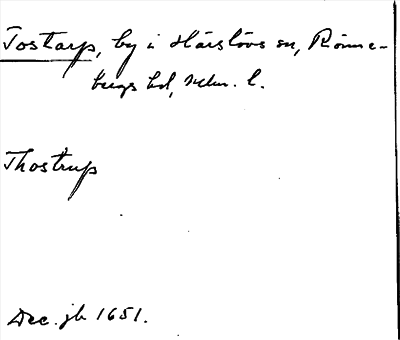 Tostarp, by i Härslövs sn, Rönne-
bergs hd, Mlm. l.
Thostrup
Dec. jb 1651.